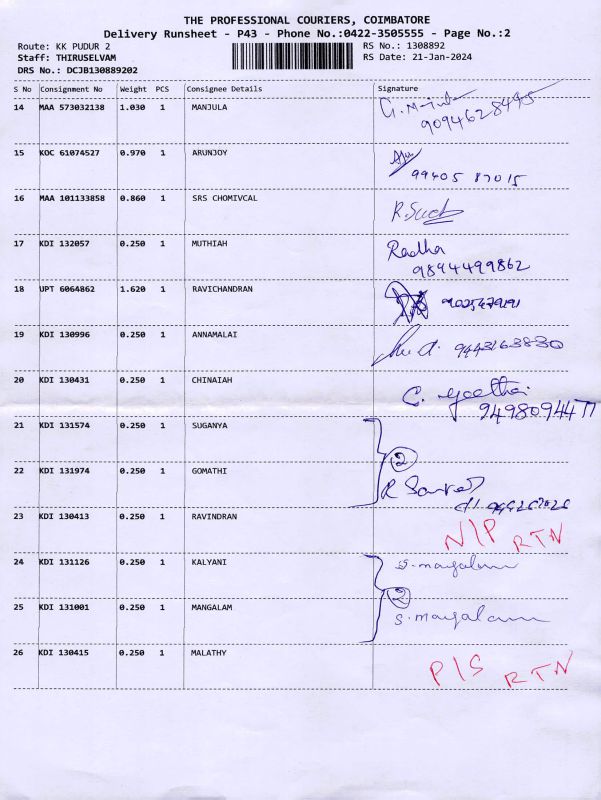 THE PROFESSIONAL COURIERS, COIMBATORE
Delivery Runsheet - P43 - Phone No.:0422-3505555 - Page No.:2
Route: KK PUDUR 2 RS No.: 1308892
Staff: THIRUSELVAM RS Date: 21-Jan-2024
DRS No.: DCJB130889202
S No Consignment No Weight PCS Consignee Details Signature
14 MAA 573032138 1.030 1 MANJULA
9094628495
15 KOC 61074527 0.970 1 ARUNJOY
99405 87015
16 MAA 101133858 0.860 1 SRS CHOMIVCAL
17 KDI 132057 0.250 1 MUTHIAH Radha
9894499862
18 UPT 6064862 1.620 1 RAVICHANDRAN
19 KDI 130996 0.250 1 ANNAMALAI 9443163830
20 KDI 130431 0.250 1 CHINAIAH C. Geethai
9498094477
21 KDI 131574 0.250 1 SUGANYA
2
22 KDI 131974 0.250 1 GOMATHI
23 KDI 130413 0.250 1 RAVINDRAN N/P RTN
24 KDI 131126 0.250 1 KALYANI S. mangalam
2
25 KDI 131001 0.250 1 MANGALAM S. mangalam
26 KDI 130415 0.250 1 MALATHY P/S RTN